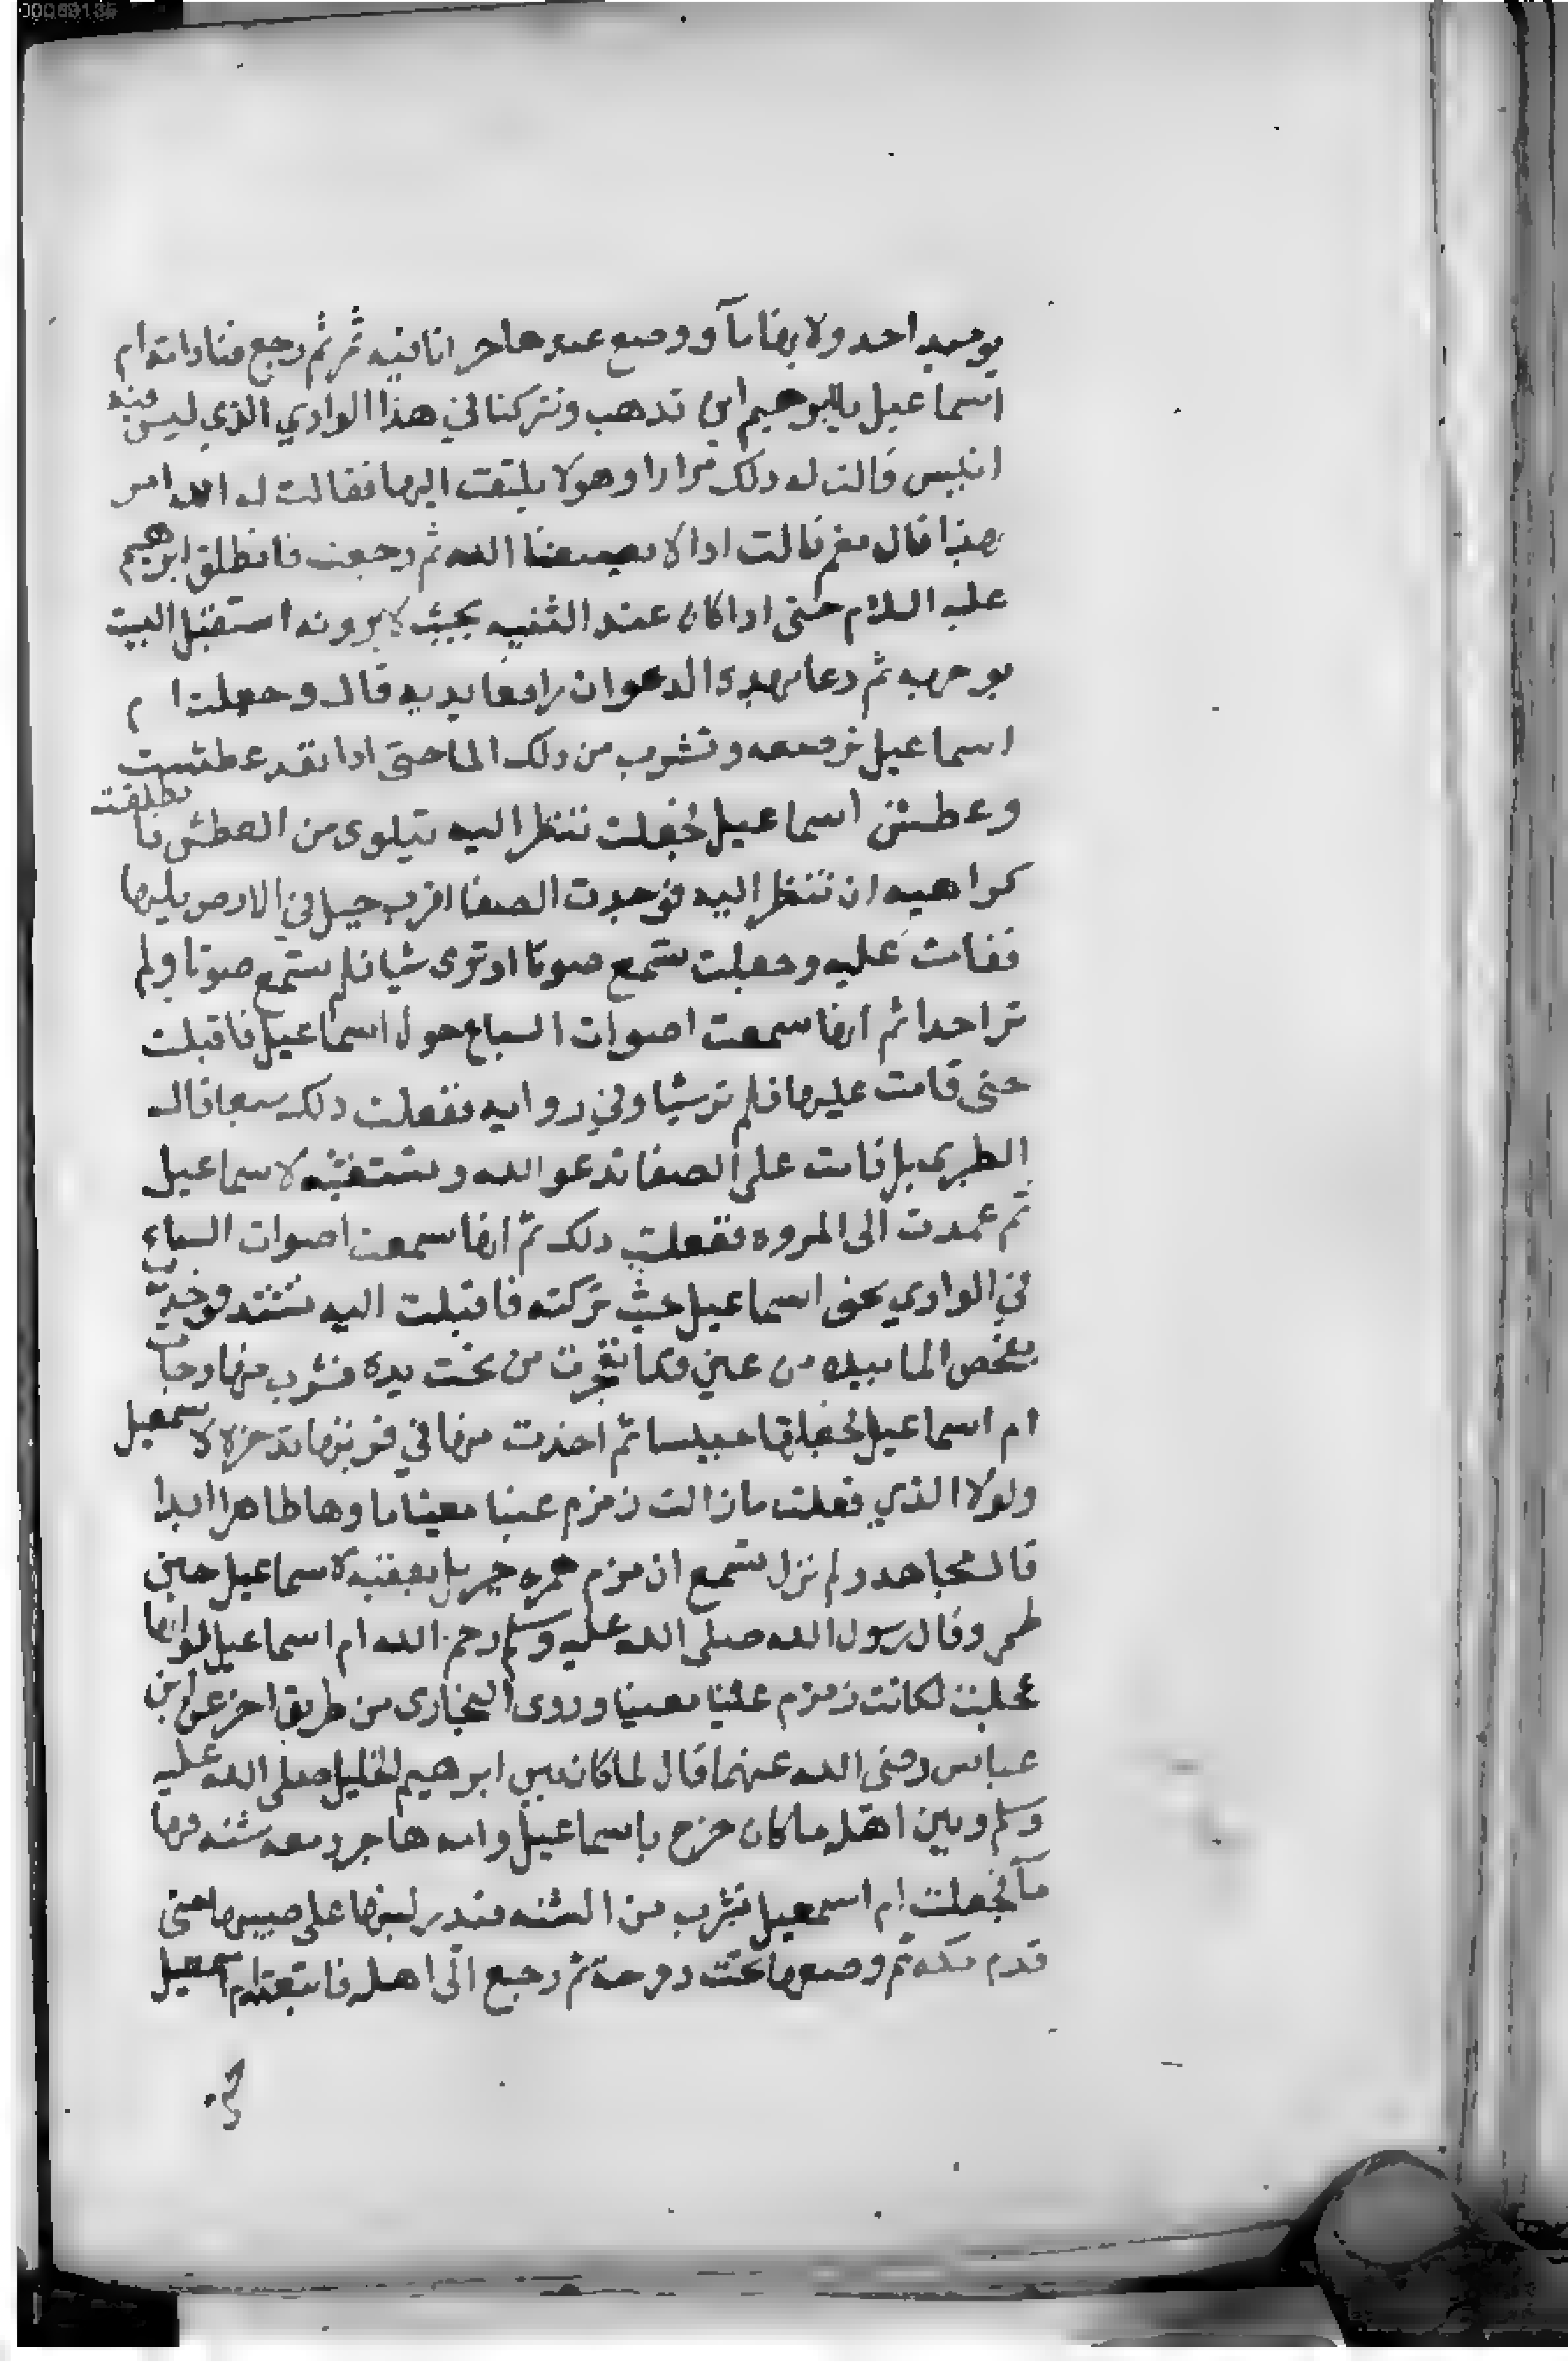 00069135
يوميد احد ولا بها مآ ووضع عند هاجر انا فيه تمر ثم رجع فنادته ام
اسماعيل يا ابرهيم اين تدهب وتتركنا في هذا الوادي الذي ليس فيه
انيس قالت له دلك مرارا وهو لا يلتفت اليها فقالت له الله امر
بهذا قال نعم قالت ادا لا يضيعنا الله ثم رجعت فانطلق ابرهيم
عليه السلام حتى اداكان عند الثنيه بحيث لا يرونه استقبل البيت
بوجهه ثم دعا بهده الدعوات رافعا يديه قال وجعلت ام
اسماعيل ترضعه وتشرب من دلك الما حتى ادا نفد عطشت
وعطش اسماعيل فجعلت تنظر اليه يتلوى من العطش فانطلقت
كراهيه ان تنظر اليه فوجدت الصفا اقرب جبل في الارض يليها
فقامت عليه وجعلت تستمع صوتا او ترى شيا فلم تستمع صوتا ولم
تر احدا ثم انها سمعت اصوات السباع حول اسماعيل فاقبلت
حتى قامت عليها فلم تر شيا وفي روايه ففعلت دلك سبعا قال
الطبري بل قامت على الصفا تدعو الله وتستغيثه لاسماعيل
ثم عمدت الى المروه ففعلت دلك ثم انها سمعت اصوات السباع
في الوادي نحو اسماعيل حيث تركته فاقبلت اليه تشتد فوجدته
يفحص الما بيده من عين قد انفجرت من تحت يده فشرب منها وجات
ام اسماعيل فجعلتها حبيسا ثم اخذت منها في قربتها تدخره لاسمعيل
ولولا الذي فعلت ما زالت زمزم عينا معينا ماوها طاهرا ابدا
قال مجاهد ولم نزل نسمع ان زمزم همزه جبريل بعقبه لاسماعيل حين
ظمي وقال رسول الله صلى الله عليه وسلم رحم الله ام اسماعيل لو انها
عجلت لكانت زمزم عينا معينا وروى البخاري من طريق اخر عن ابن
عباس رضي الله عنهما قال لما كان بين ابرهيم الخليل صلى الله عليه
وسلم وبين اهله ما كان خرج باسماعيل وامه هاجر ومعه شنه فيها
مآ فجعلت ام اسمعيل تشرب من الشنه فيدر لبنها على صبيها حتى
قدم مكه ثم وضعها تحت دوحة ثم رجع الى اهله فاتبعته ام اسمعيل